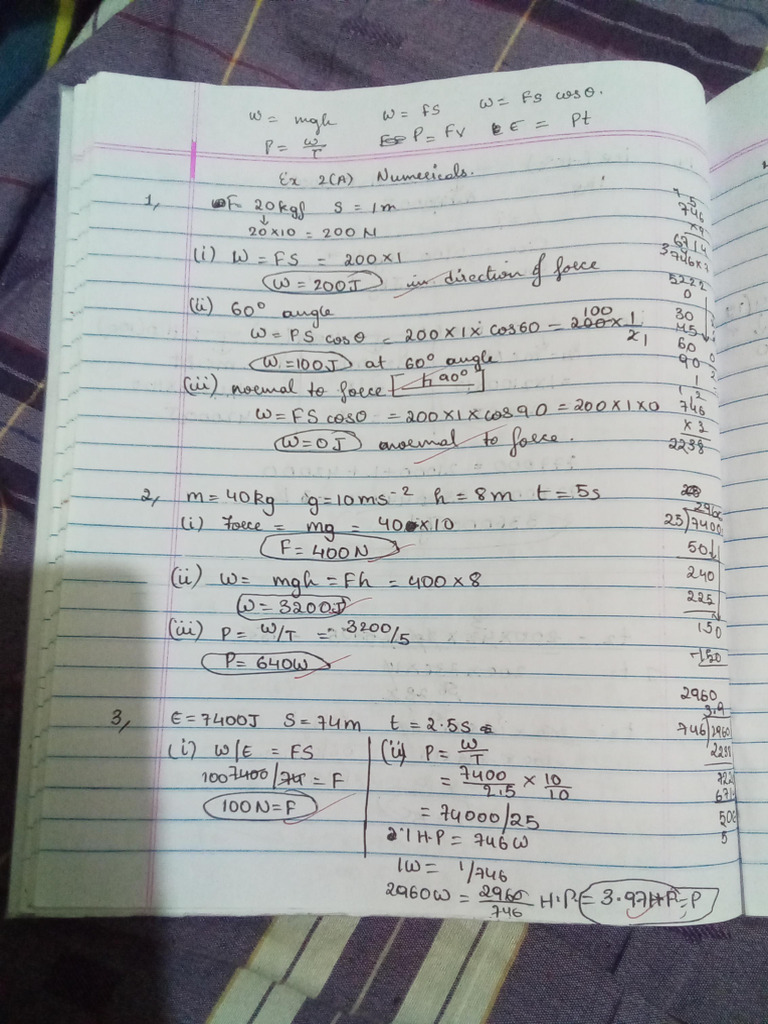 W = mgh W = FS W = FS cosθ.
P = W/T P = Fv E = Pt
Ex 2(A) Numericals.
1, F= 20kgf S = 1m
↓
20×10 = 200 N
(i) W = FS = 200×1
W = 200J in direction of force
(ii) 60° angle
W = FS cosθ = 200×1×cos60 = 200×1/2 100 1
W=100J at 60° angle
(iii) normal to force h 90°
W = FS cosθ = 200×1×cos90 = 200×1×0
W=0J normal to force.
2, m=40kg g=10ms⁻² h=8m t=5s
(i) Force = mg = 40×10
F=400N
(ii) W = mgh = Fh = 400×8
W=3200J
(iii) P = W/T = 3200/5
P= 640W
3, E=7400J S=74m t=2.5s
(i) W/E = FS
100 7400/74 = F
100N=F
(ii) P = W/T
= 7400/2.5 × 10/10
= 74000/25
1H.P = 746W
1W = 1/746
2960W = 2960/746 H.P. = 3.97H.P = P
7 5
746
×9
6714
3746×7
5222
0
30
45
60
90
1
1 2
746
×3
2238
2960
25)7400
50↓
240
225
150
-150
2960
3.9
746)2960
2238